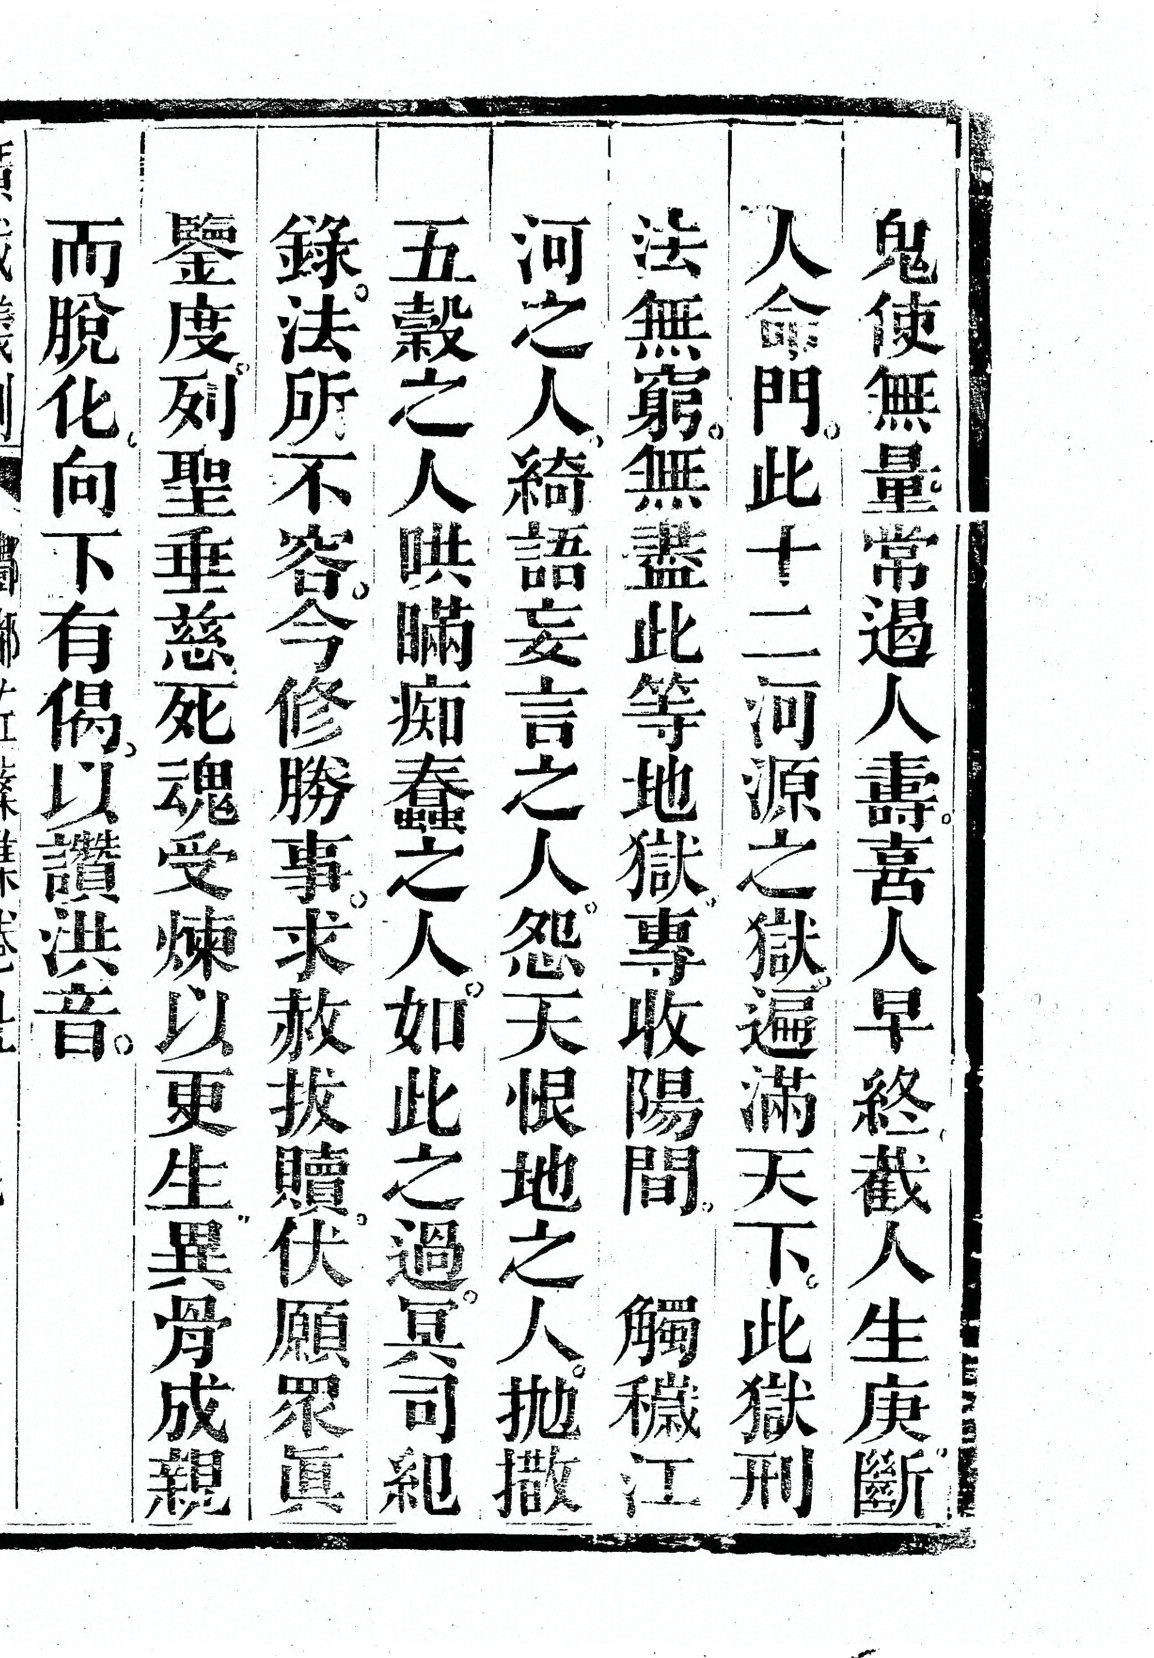 鬼使無量常遏人壽。喜人早終、截人生庚、斷
人命門。此十二河源之獄。遍滿天下。此獄刑
法無窮。無盡此等地獄。專收陽間。　觸穢江
河之人、綺語妄言之人。怨天恨地之人。拋撒
五穀之人哄瞞痴蠢之人。如此之過。冥司紀
錄。法所不容。今修勝事。求赦拔贖。伏願眾眞
鑒度。列聖垂慈。死魂受煉以更生。異骨成親
而脫化。向下有偈。以讚洪音。